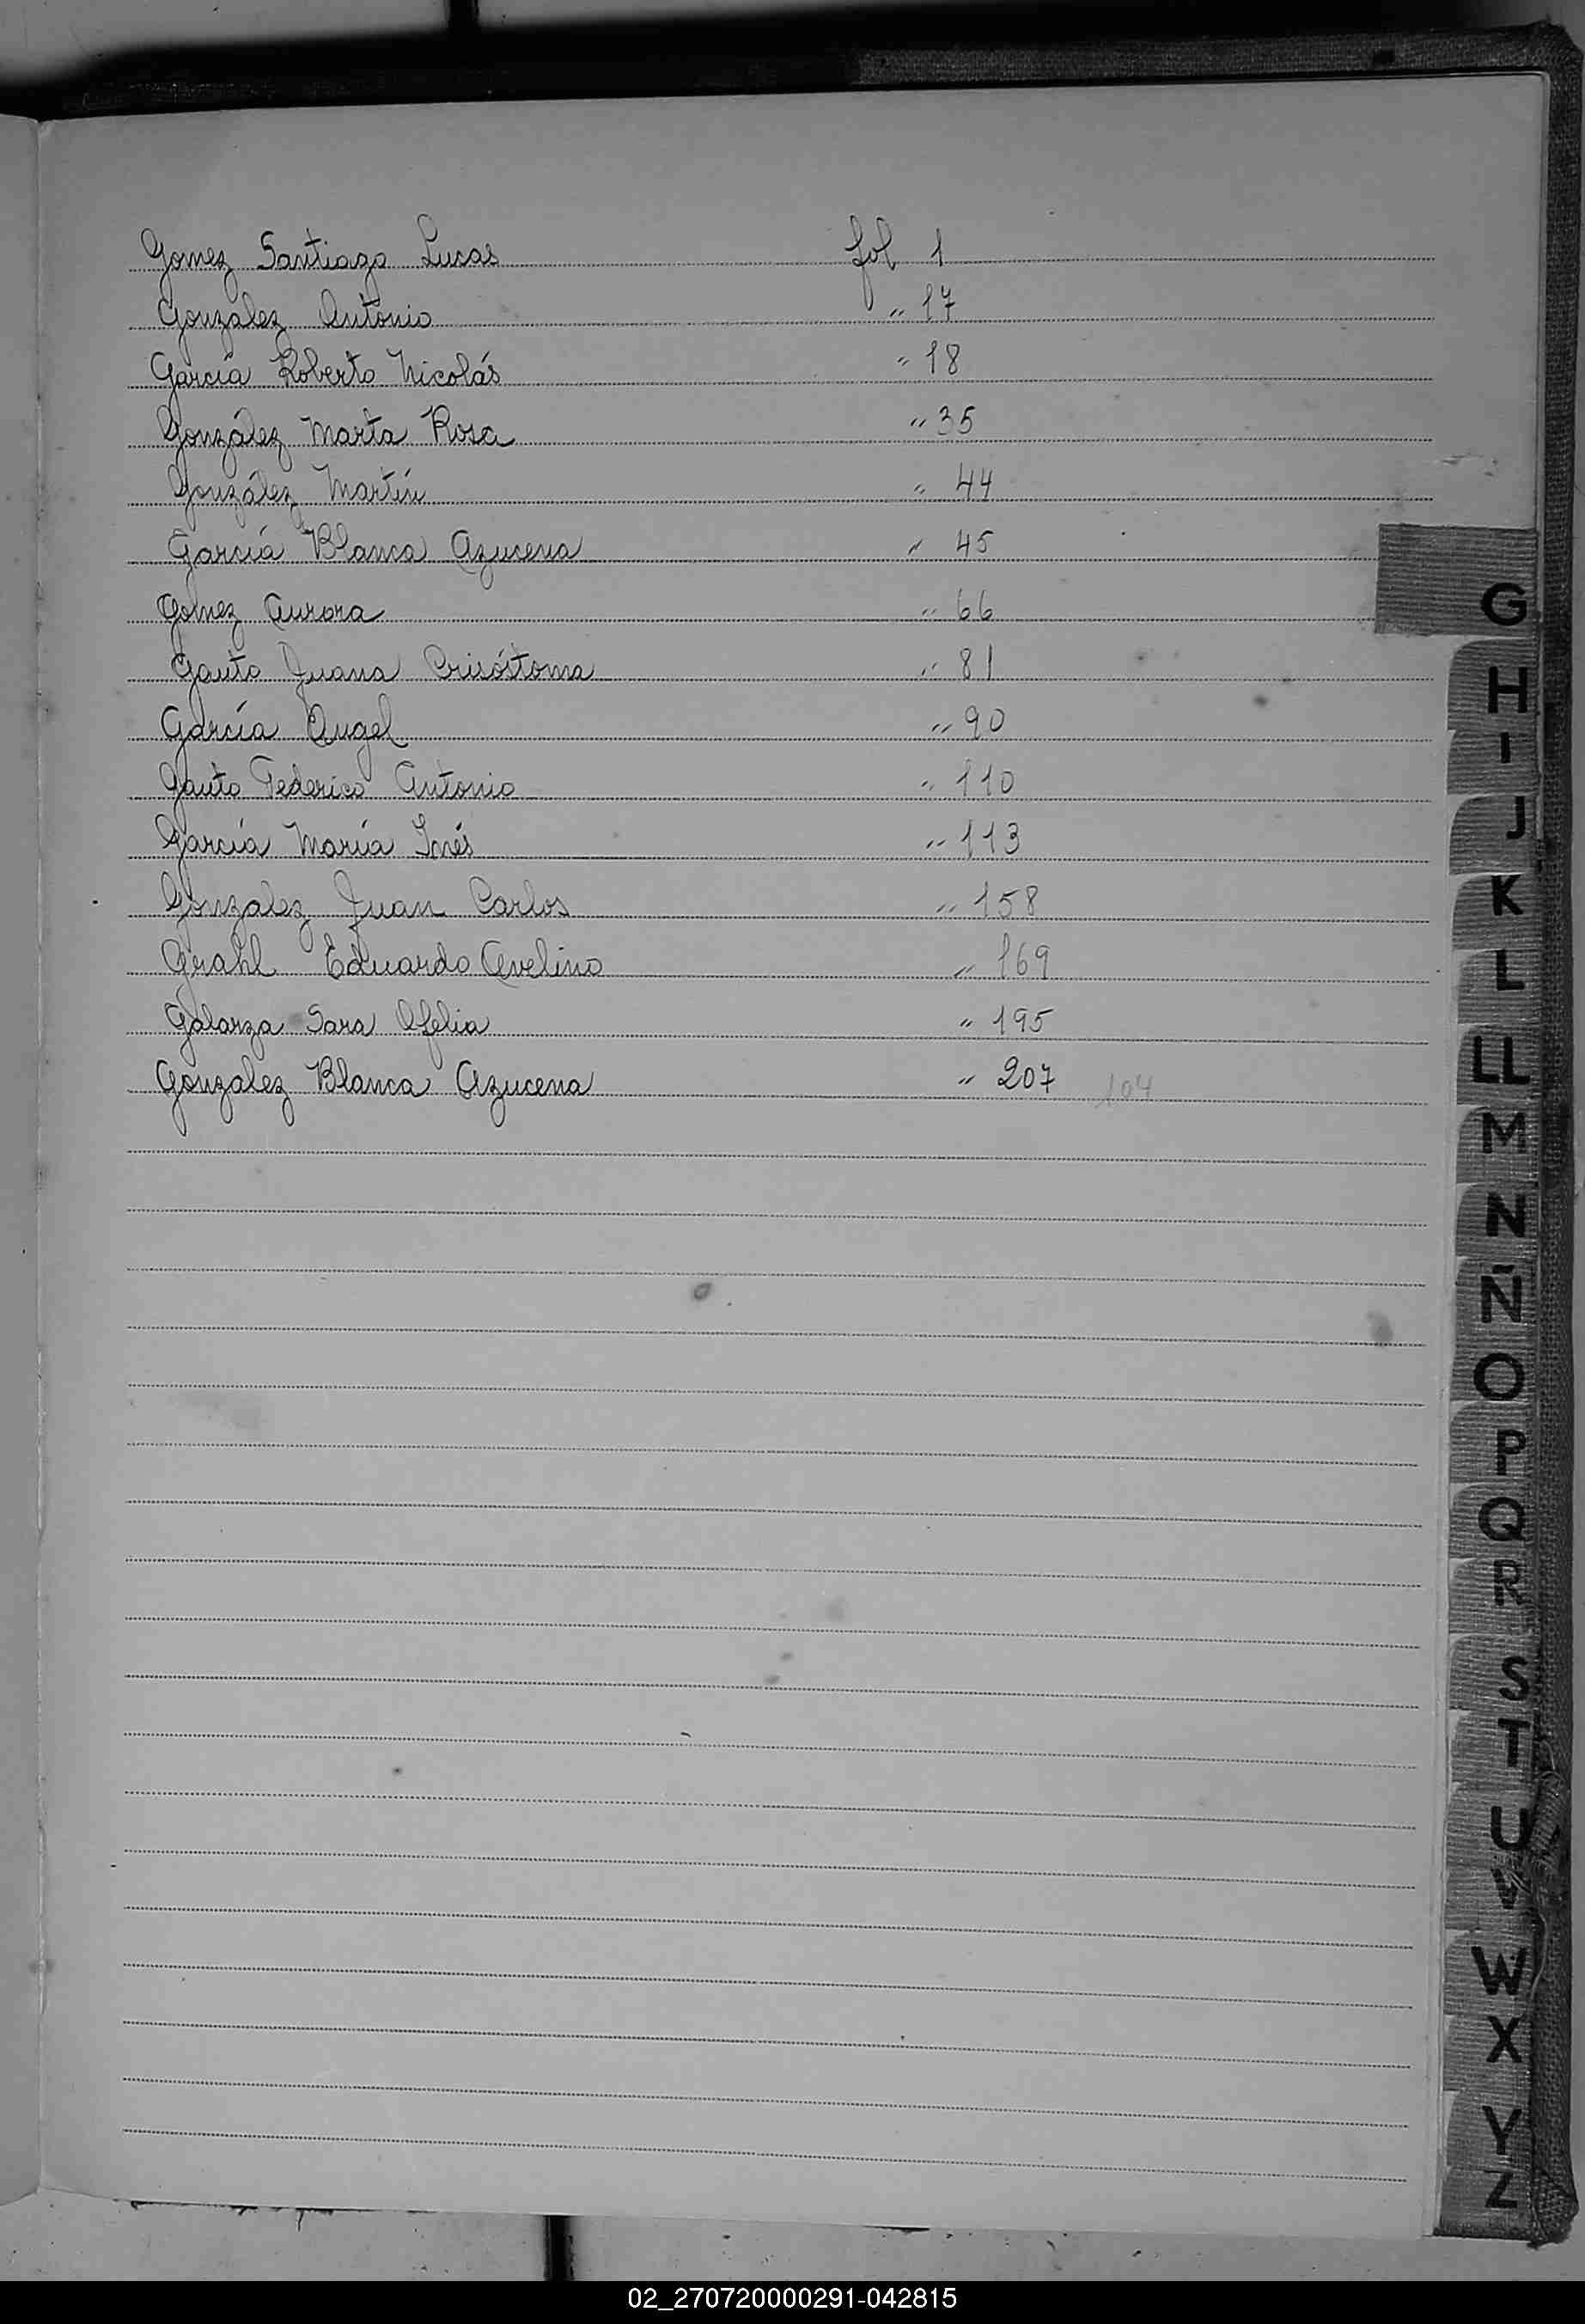 Gomez Santiago Lucas fol 1
Gonzalez Antonio " 17
García Roberto Nicolás " 18
González Marta Rosa " 35
González Martín " 44
García Blanca Azucena " 45
Gomez Aurora " 66
Gauto Juana Crisóstoma " 81
García Angel " 90
Gauto Federico Antonio " 110
García María Inés " 113
Gonzalez Juan Carlos " 158
Grahl Eduardo Avelino " 169
Galarza Sara Ofelia " 195
Gonzalez Blanca Azucena " 207 104
G
H
I
J
K
L
LL
M
N
Ñ
O
P
Q
R
S
T
U
V
W
X
Y
Z
02_270720000291-042815